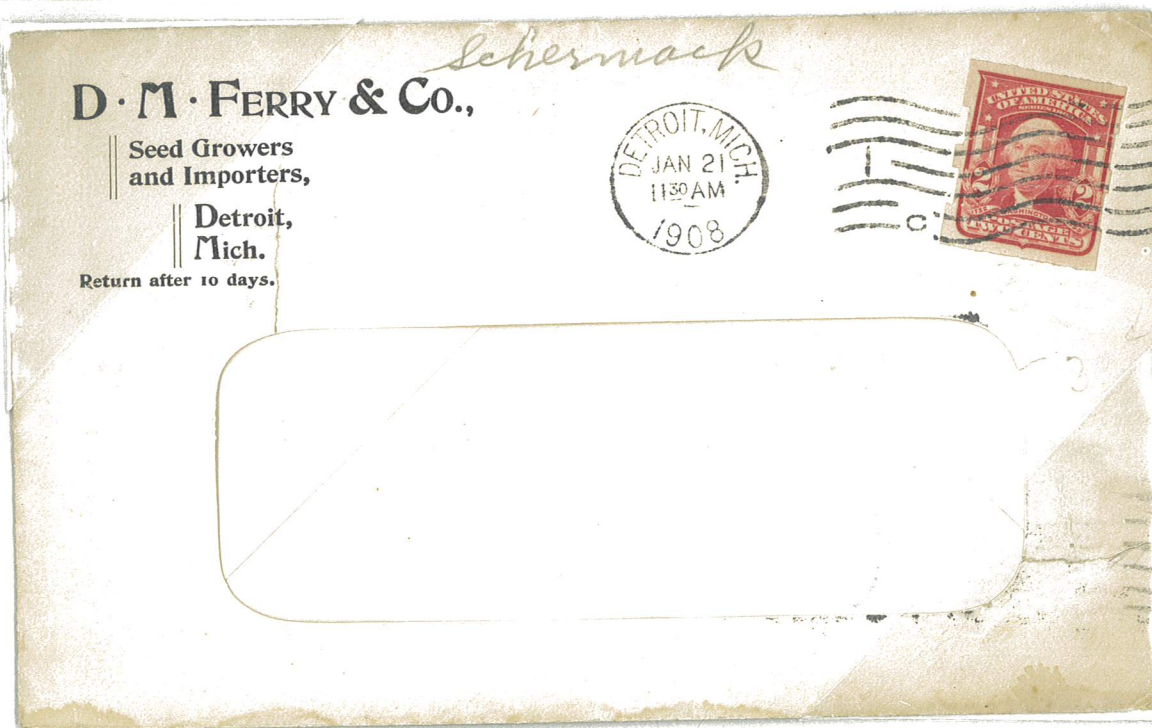 Schermack
D·M·FERRY & CO.,
Seed Growers
and Importers,
Detroit,
Mich.
Return after 10 days.
DETROIT, MICH.
JAN 21
11 30 AM
1908
1
C
UNITED STATES
OF AMERICA
2 2
WASHINGTON
POSTAGE
TWO CENTS